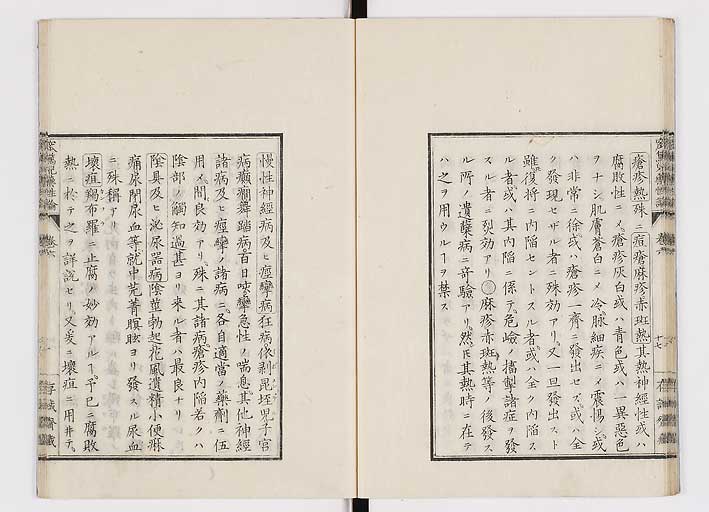 瘡疹熱殊ニ痘瘡麻疹赤斑熱其熱神經性或ハ
腐敗性ニノ瘡疹灰白或ハ青色或ハ一異惡色
ヲナシ肌膚蒼白ニノ冷脉細疾ニノ震惕シ或
ハ非常ニ徐或ハ瘡疹一齊ニ發出セズ或ハ全
ク發現セザル者ニ殊効アリ又一旦發出スト
雖復將ニ内陷セントスル者或ハ全ク内陷ス
ル者或ハ其内陷ニ係テ危嶮ノ搐掣諸症ヲ發
スル者ニ烈効アリ麻疹赤斑熱等ノ後發ス
ル所ノ遺蘖病ニ竒驗アリ然𪜈其熱時ニ在テ
ハ之ヲ用ウルヿヲ禁ス
慢性神經病及ヒ痙攣病狂病依剥昆垤児子宮
病癲癇舞踏病百日咳攣急性ノ喘息其他神經
諸病及ヒ痙攣ノ諸病ニ各自適當ノ藥劑ニ伍
用ノ間良効アリ殊ニ其諸病瘡疹内陷若クハ
陰部ノ觸知過甚ヨリ来ル者ハ最良ナリ
陰具及ヒ泌尿器病陰莖勃起花風遺精小便痳
痛尿閉尿血等就中芫菁瞑眩ヨリ發スル尿血
ニ殊稱アリ
壞疽羯布羅ニ止腐ノ妙効アルヿ予已ニ腐敗
熱ニ於テ之ヲ詳説セリ又爰ニ壞疽ニ用井テ